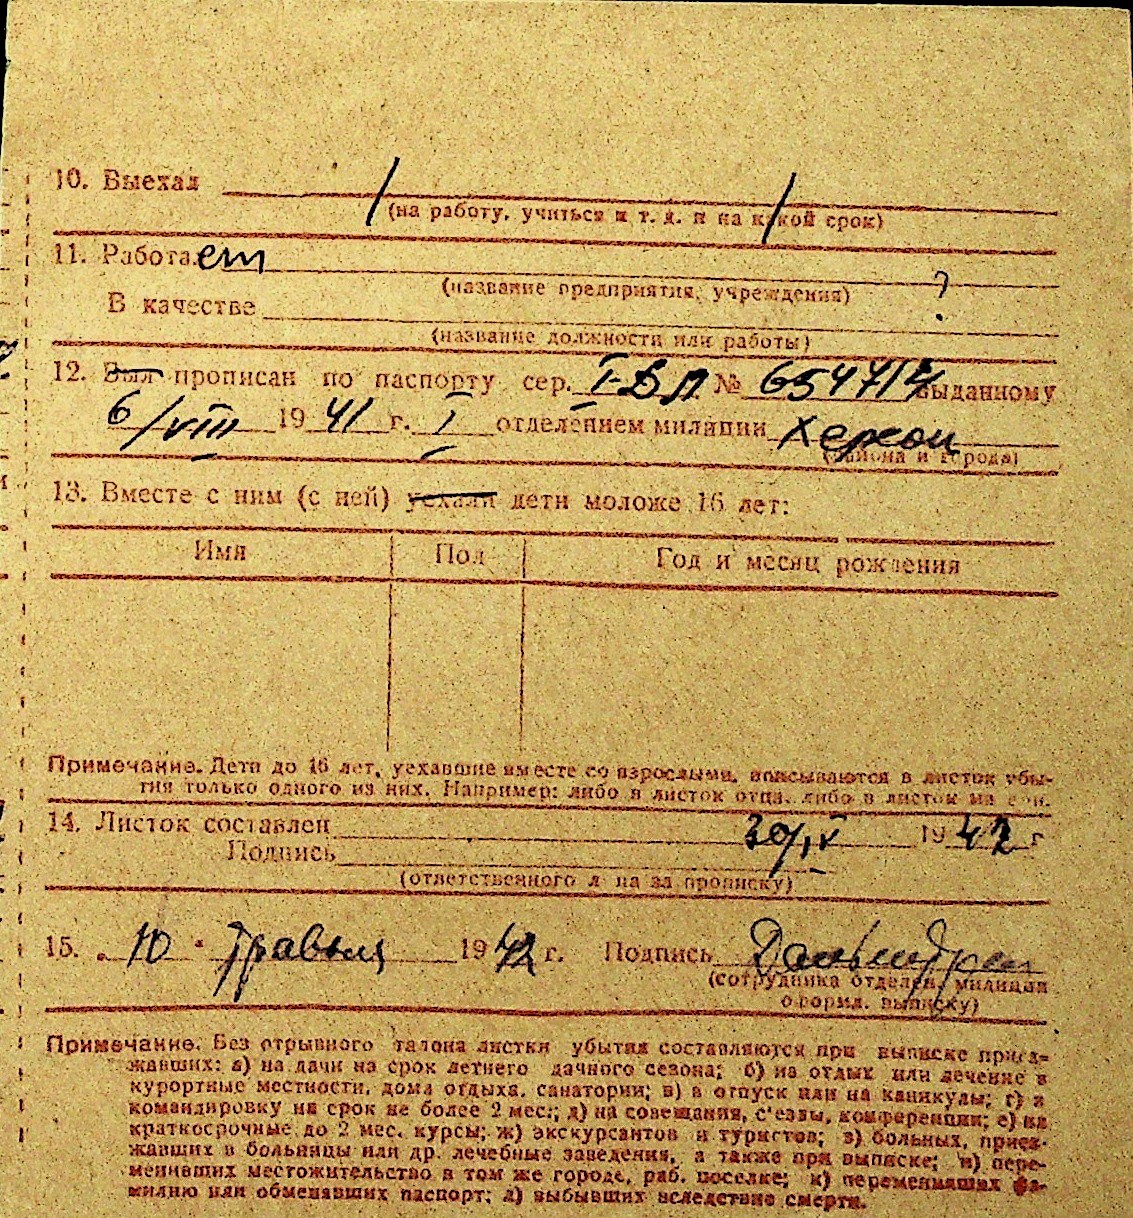 10. Выехал
(на работу, учиться и т. д. и на какой срок)
11. Работает
(название предприятия, учреждения) ?
В качестве
(название должности или работы)
12. Был прописан по паспорту сер. № выданному
6/VIII 1941 г. I отделением милиции Херсон
(района и города)
13. Вместе с ним (с ней) уехали дети моложе 16 лет:
Имя Пол Год и месяц рождения
Примечание. Дети до 16 лет, уехавшие вместе со взрослыми, вписываются в листок убы-
тия только одного из них. Например: либо в листок отца, либо в листок матери.
14. Листок составлен 1942 г
Подпись
(ответственного л на за прописку)
15. „ 10 " Травня 1942 г. Подпись
(сотрудника отделен. милиции
оформл. выписку)
Примечание. Без отрывного талона листки убытия составляются при выписке приез-
жавших: а) на дачи на срок летнего дачного сезона; б) на отдых или лечение в
курортные местности, дома отдыха, санатории; в) в отпуск или на каникулы; г) в
командировку на срок не более 2 мес.; д) на совещания, с'езды, конференции; е) на
краткосрочные до 2 мес. курсы; ж) экскурсантов и туристов; з) больных, приез-
жавших в больницы или др. лечебные заведения, а также при выписке; и) пере-
менивших местожительство в том же городе, раб. поселке; к) переменивших фа-
милию или обменявших паспорт; л) выбывших вследствие смерти.